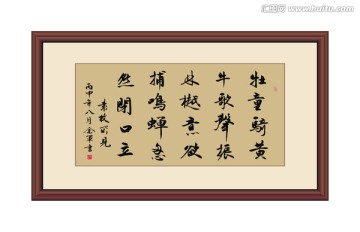 牧童騎黄
牛歌聲振
林樾意欲
捕鳴蟬忽
然閉口立
袁枚所見
丙申年八月金書
www.huitu.com